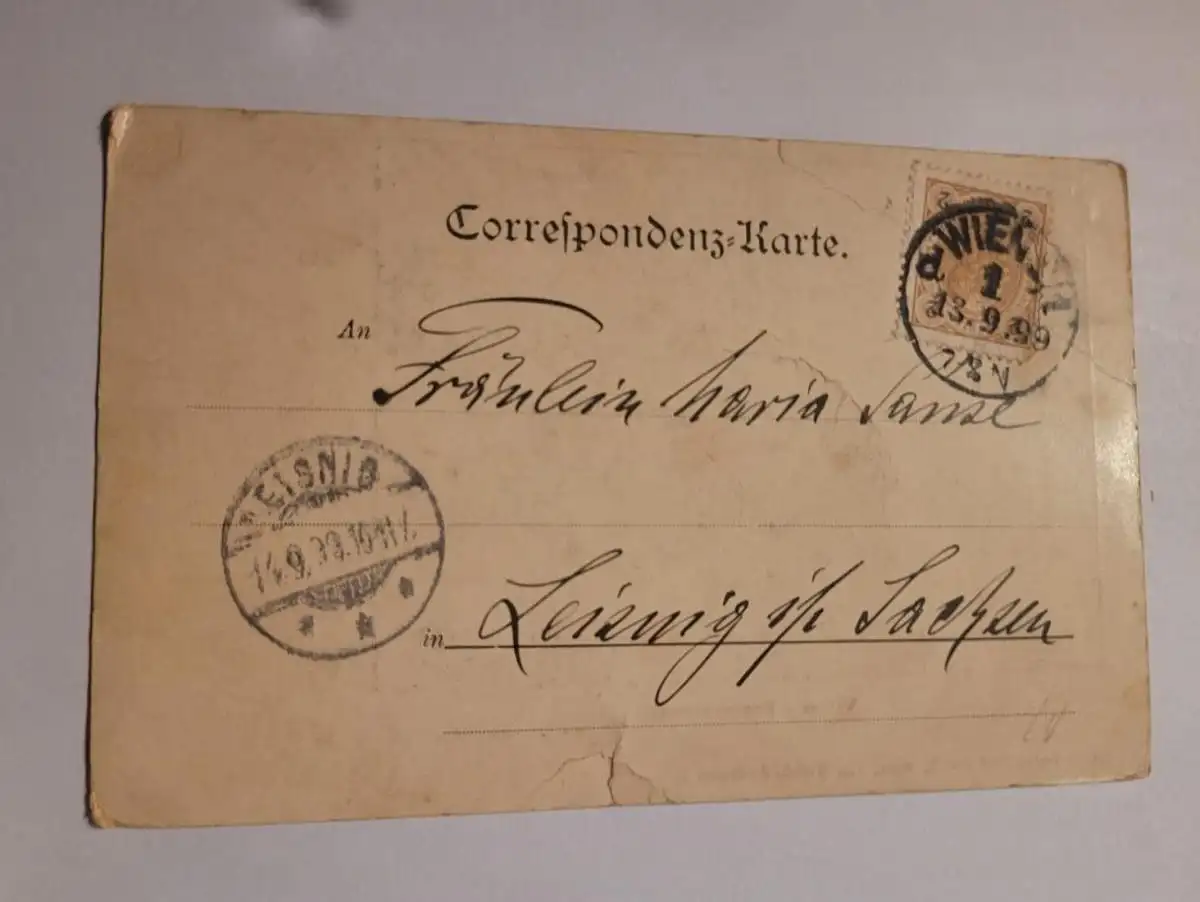 Correspondenz-Karte.
WIEN
1
13.9.99
7/8 N
An
Fräulein Maria
LEISNIG
14.9.99.
in Leisnig i/ Sachsen